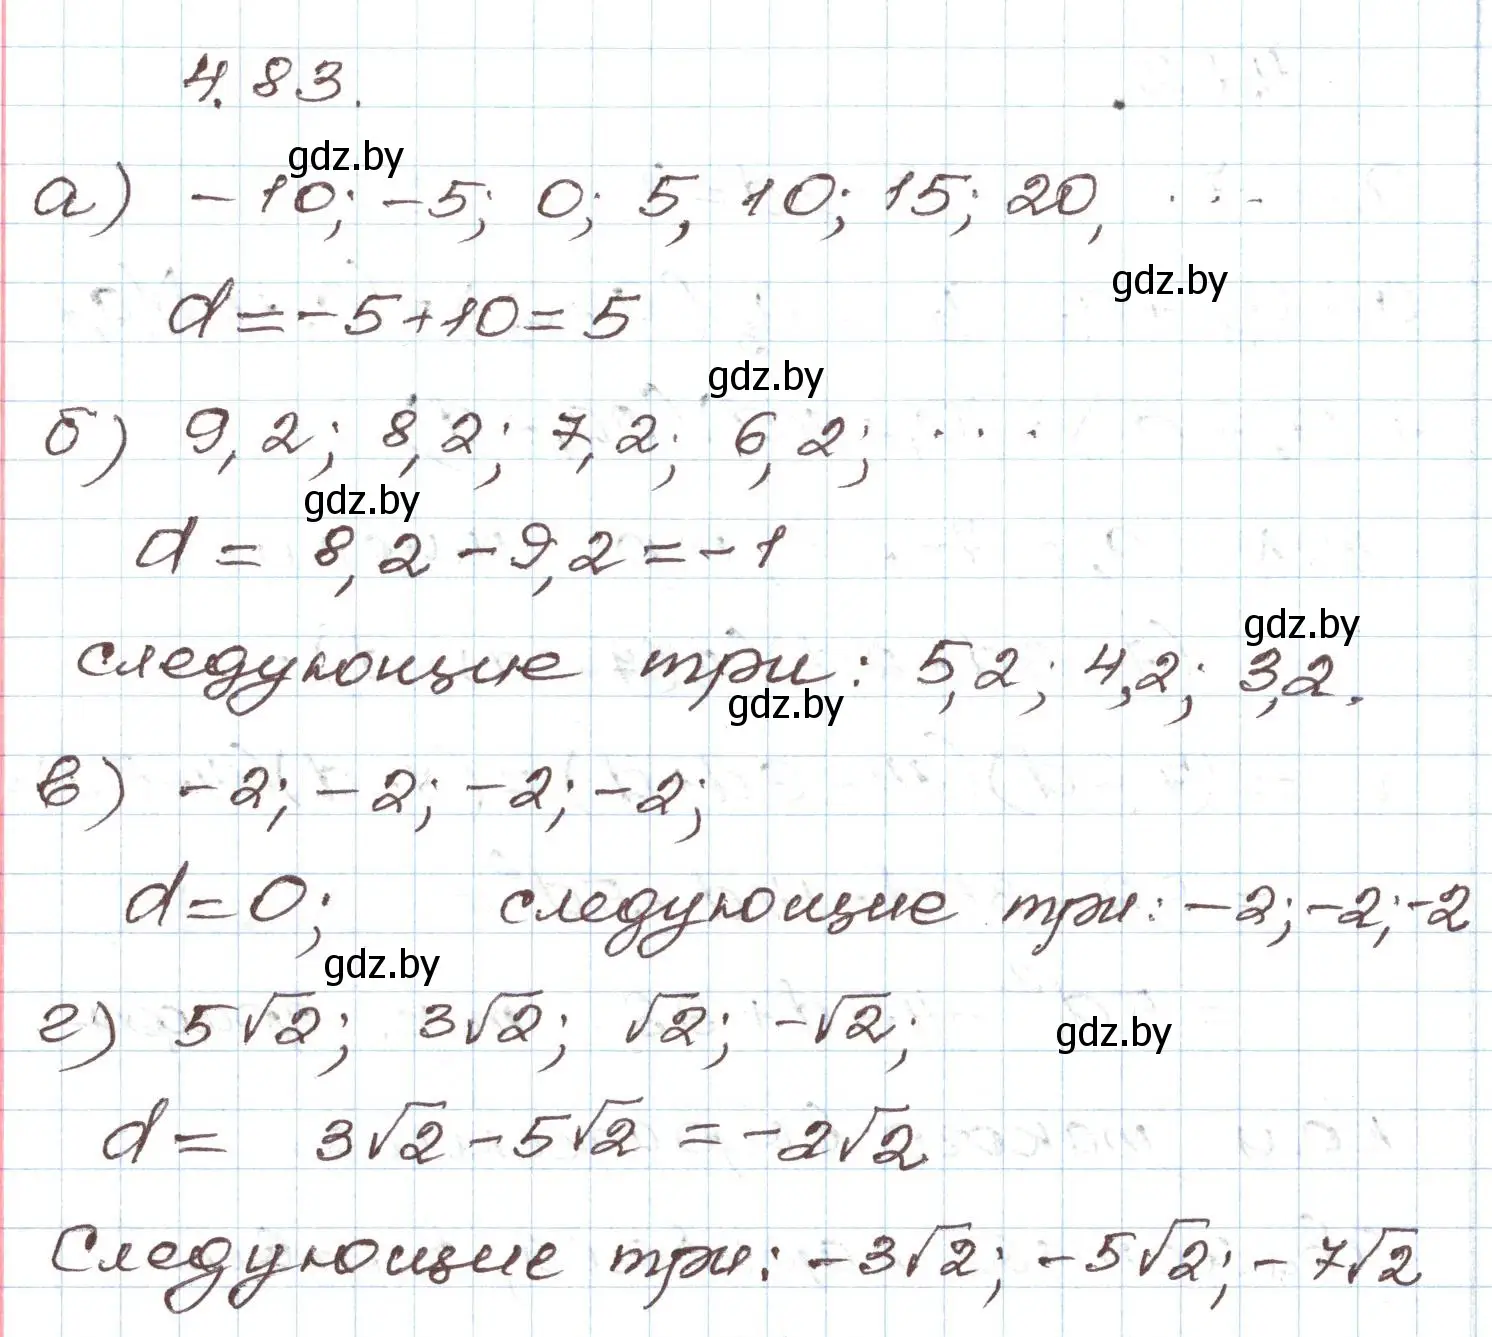 4.83.
gdz.by
а) -10; -5; 0; 5, 10; 15; 20, ...
gdz.by
d=-5+10=5
gdz.by
б) 9,2; 8,2; 7,2; 6,2; ...
gdz.by
d= 8,2-9,2=-1
gdz.by
следующие три: 5,2; 4,2; 3,2.
gdz.by
в) -2; -2; -2; -2;
d=0; следующие три: -2; -2; -2
gdz.by
г) 5√2; 3√2; √2; -√2;
gdz.by
d= 3√2-5√2 =-2√2
Следующие три: -3√2; -5√2; -7√2